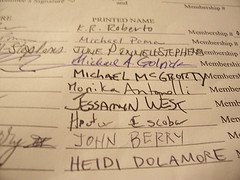 Signature
PRINTED NAME
K.R. Roberto Membership #
Michael Membership #
JUNE Membership #
Michael A. Golrick Membership #
MICHAEL MCGRORTY
Monika Antonelli Membership
JESSAMYN WEST Membership #
Hector Escobar Membership #
JOHN BERRY Membership #
HEIDI DOLAMORE Membership #